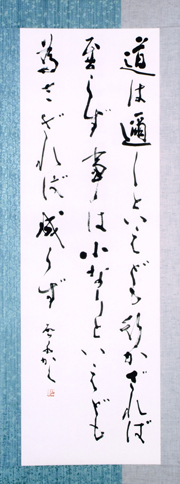 道は邇しといえども行かざれば
至らず事は小なりといえども
為さざれば成らず